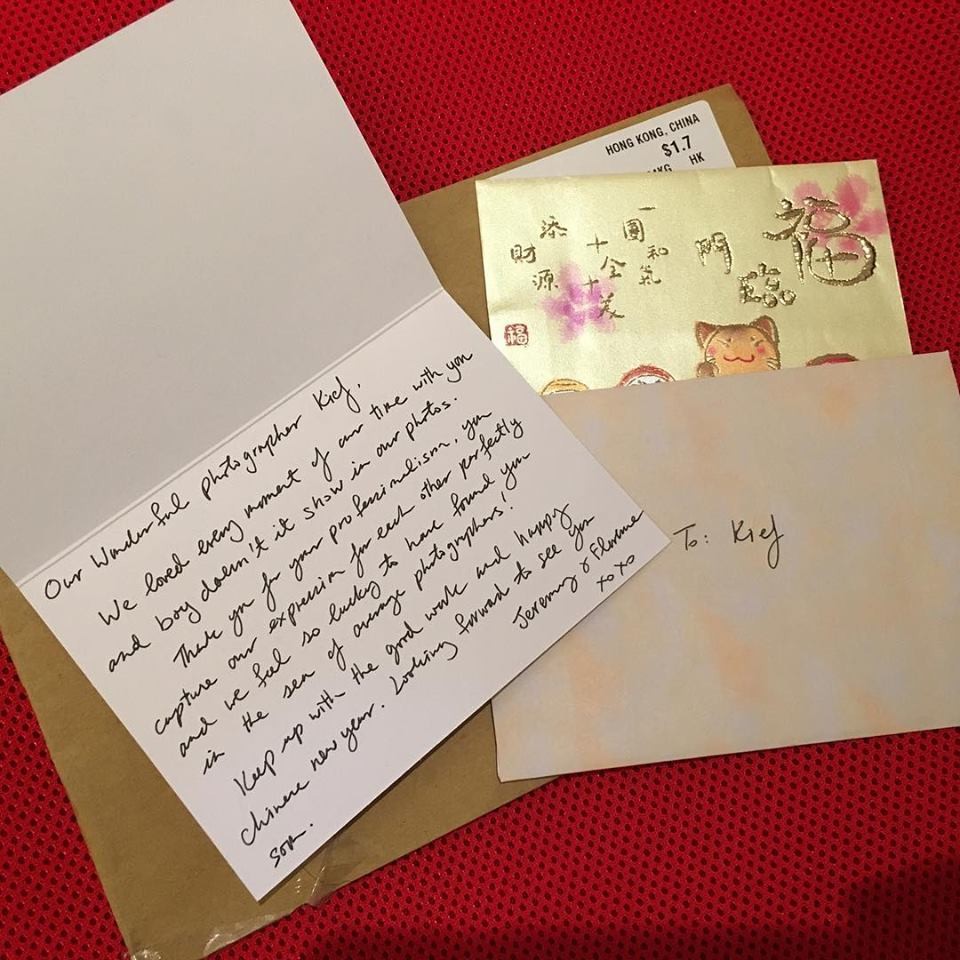 Our Wonderful photographer Kief,
We loved every moment of our time with you
and boy doesn't it show in our photos.
Thank you for your professionalism, you
capture our expression for each other perfectly
and we feel so lucky to have found you
in the sea of average photographers!
Keep up with the good work and happy
chinese new year. Looking forward to see you
soon.
Jeremy & Florence
xoxo
To: Kief
HONG KONG, CHINA
$1.7
HK
福
臨
門
一
團
和
氣
十
全
十
美
添
財
源
福